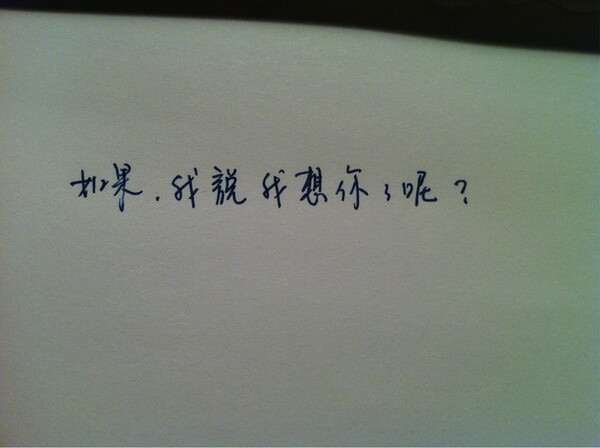 如果.我説我想你了呢?